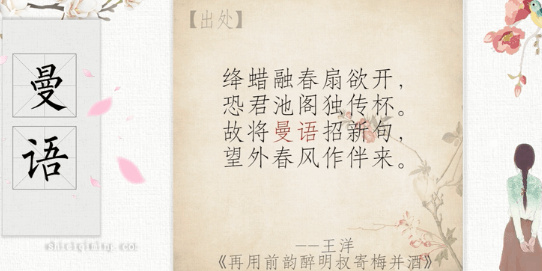 曼
语
【出处】
绛蜡融春扇欲开，
恐君池阁独传杯。
故将曼语招新句，
望外春风作伴来。
——王洋
《再用前韵醉明叔寄梅并酒》